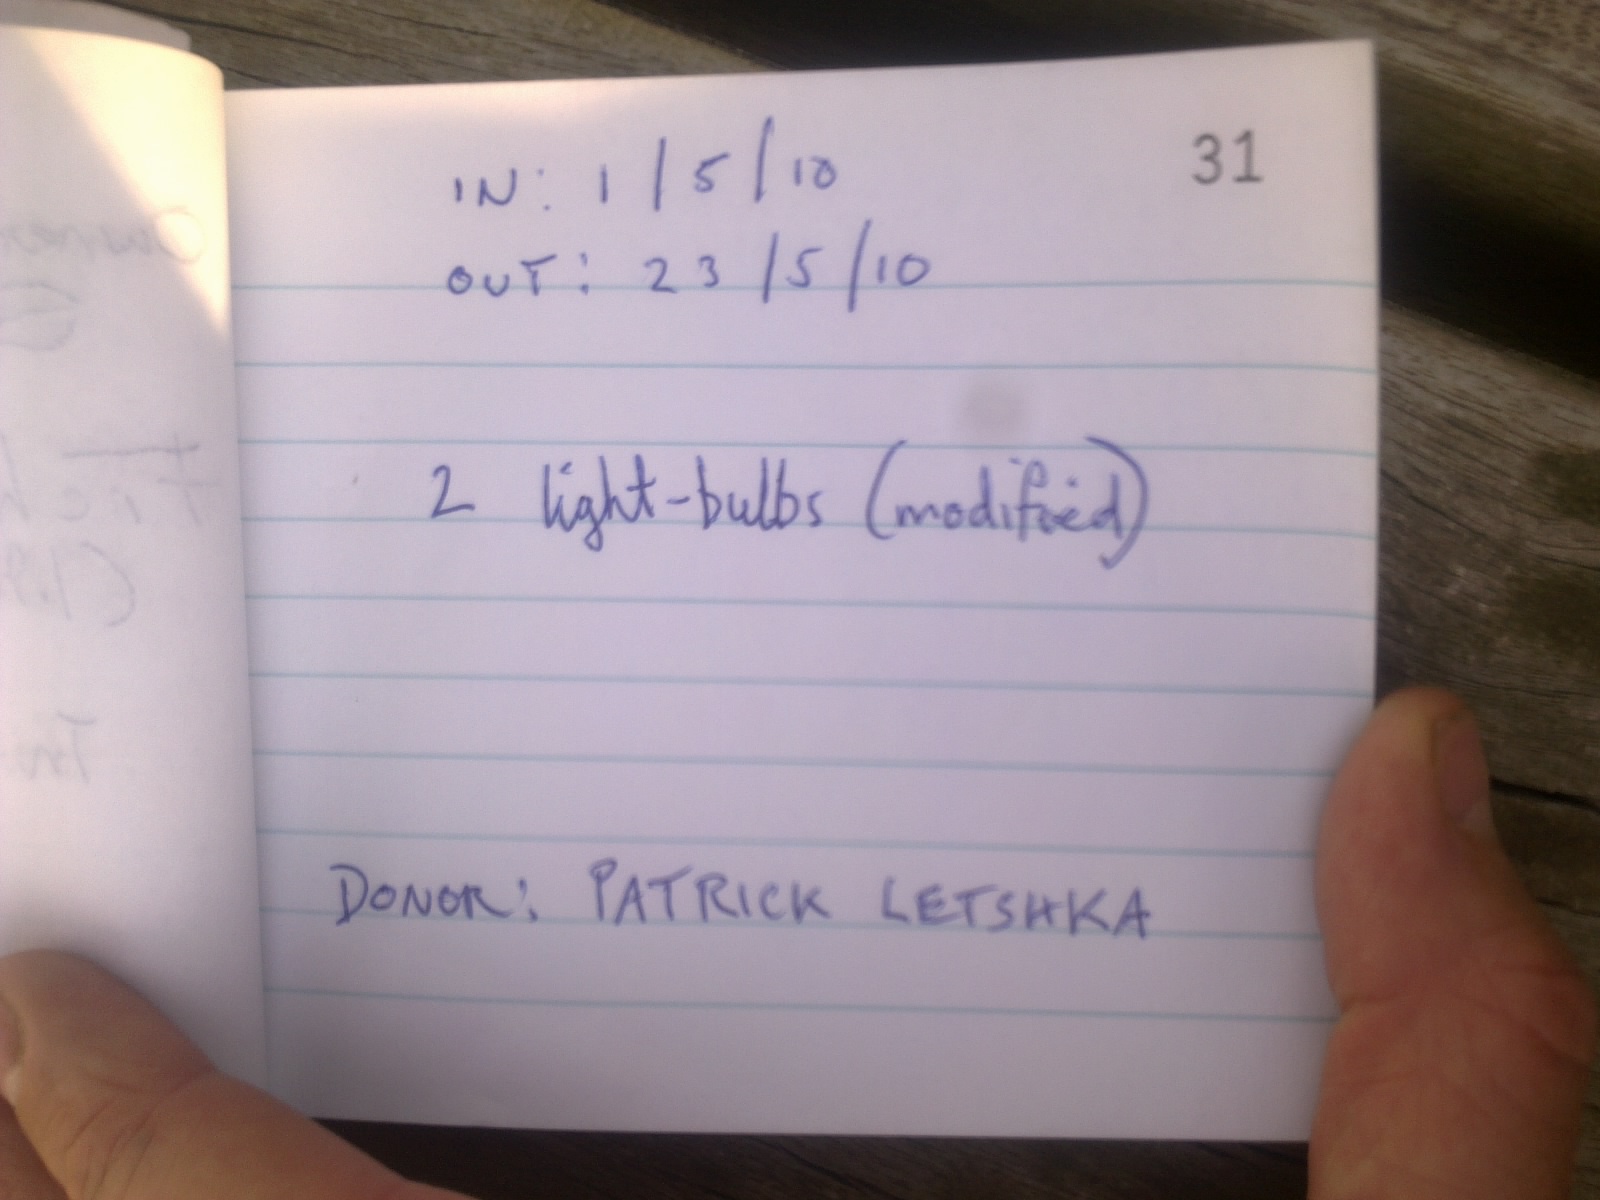 31
IN: 1/5/10
OUT: 23/5/10
2 light-bulbs (modified)
DONOR: PATRICK LETSHKA